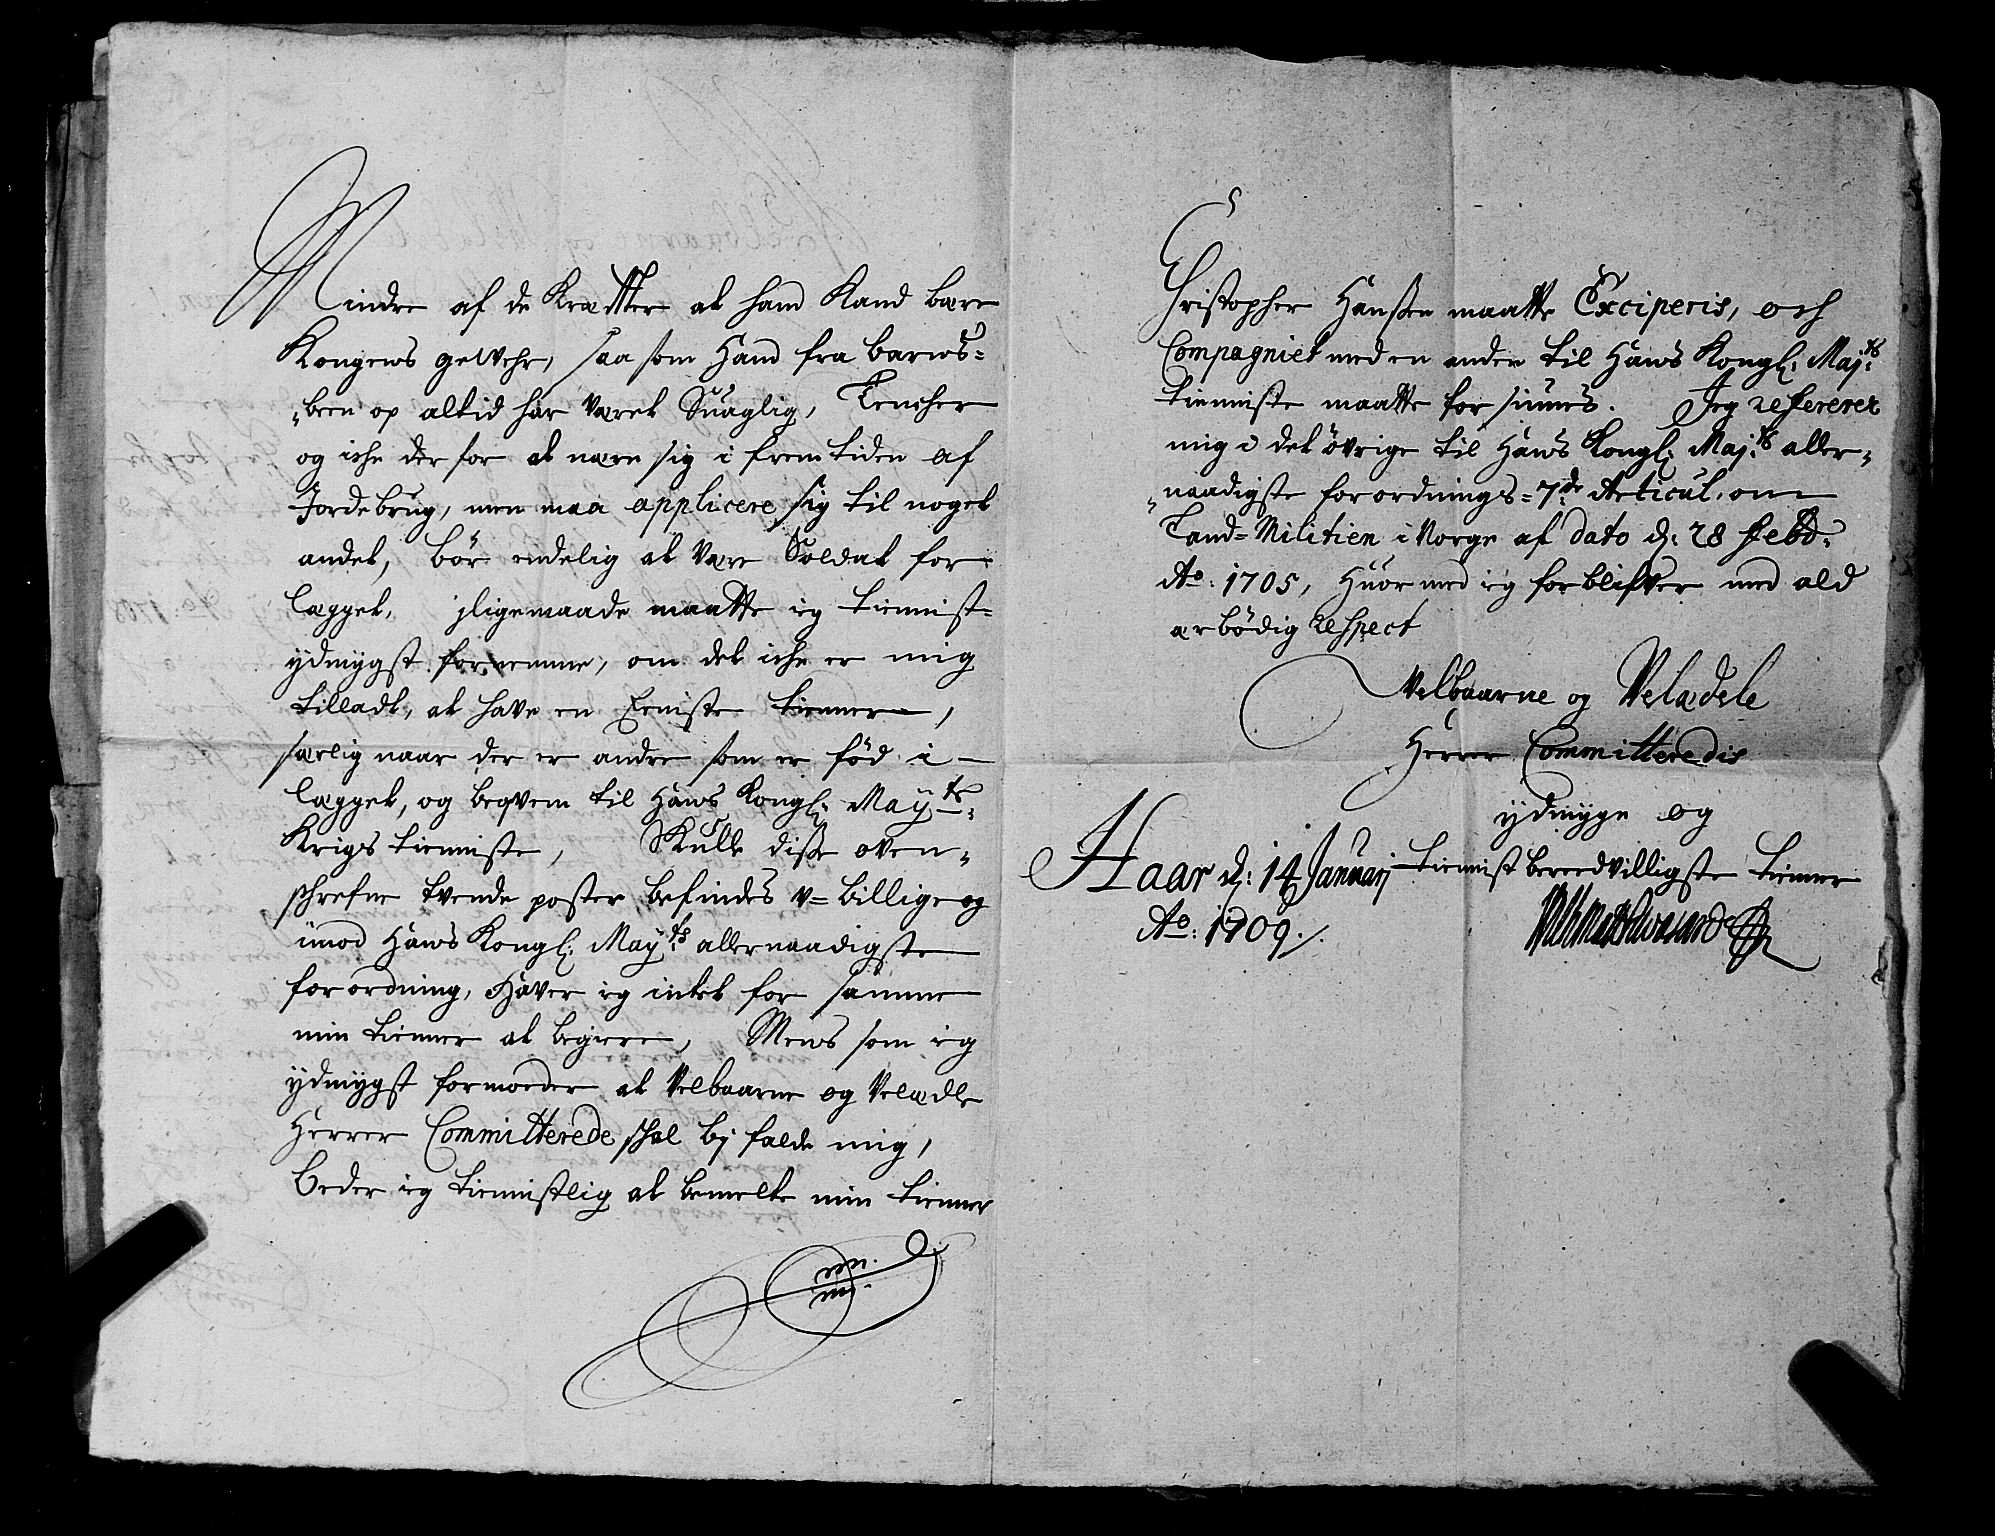 Mindre af de Kræffter at hand Kand bære
Kongens gewehr, saa som Hand fra barns-
been op altid har været Suaglig, Tencher
og iche derfor at nære sig i fremtiden af
Jordebrug, men maa applicere sig til noget
andet, bør endelig at være Soldat for
lægget, jligemaade maatte ieg tiennist-
ydmygst fornemme, om det iche er mig
tilladt, at have en Eeniste tienner,
særlig naar der er andre som er fød i
lægget, og beqvem til Hans Kongl: Mayts:
Krigs tienniste, Skulle disse oven-
schrefne tvende poster befindes u-billige og
imod Hans Kongl: Mayts allernaadigste
forordning, Haver ieg intet for samme
min tienner at begiere, Mens som ieg
ydmygst formoeder at Velbaarne og Velædle
Herrer Committerede schal bj falde mig,
Beder ieg tiennistlig at bemelte min tienner
Christopher Hanssen maatte Exciperis, och
Compagniet med en anden til Hans Kongl: Majts:
tienniste maatte forsiunes. Jeg refererer
mig i det øvrige til Hans Kongl: Maj:ts aller-
naadigste forordnings=7de Articul, om
Land=Militien i Norge af dato d: 28 Febr:
Ao: 1705, Huor med ieg forblifver med ald
ærbödig respect
Velbaarne og Velædele
Herrer Committeredis
ydmyge og
Haar d: 14 Januarij tiennist bereedvilligste tienner
Ao: 1709./.